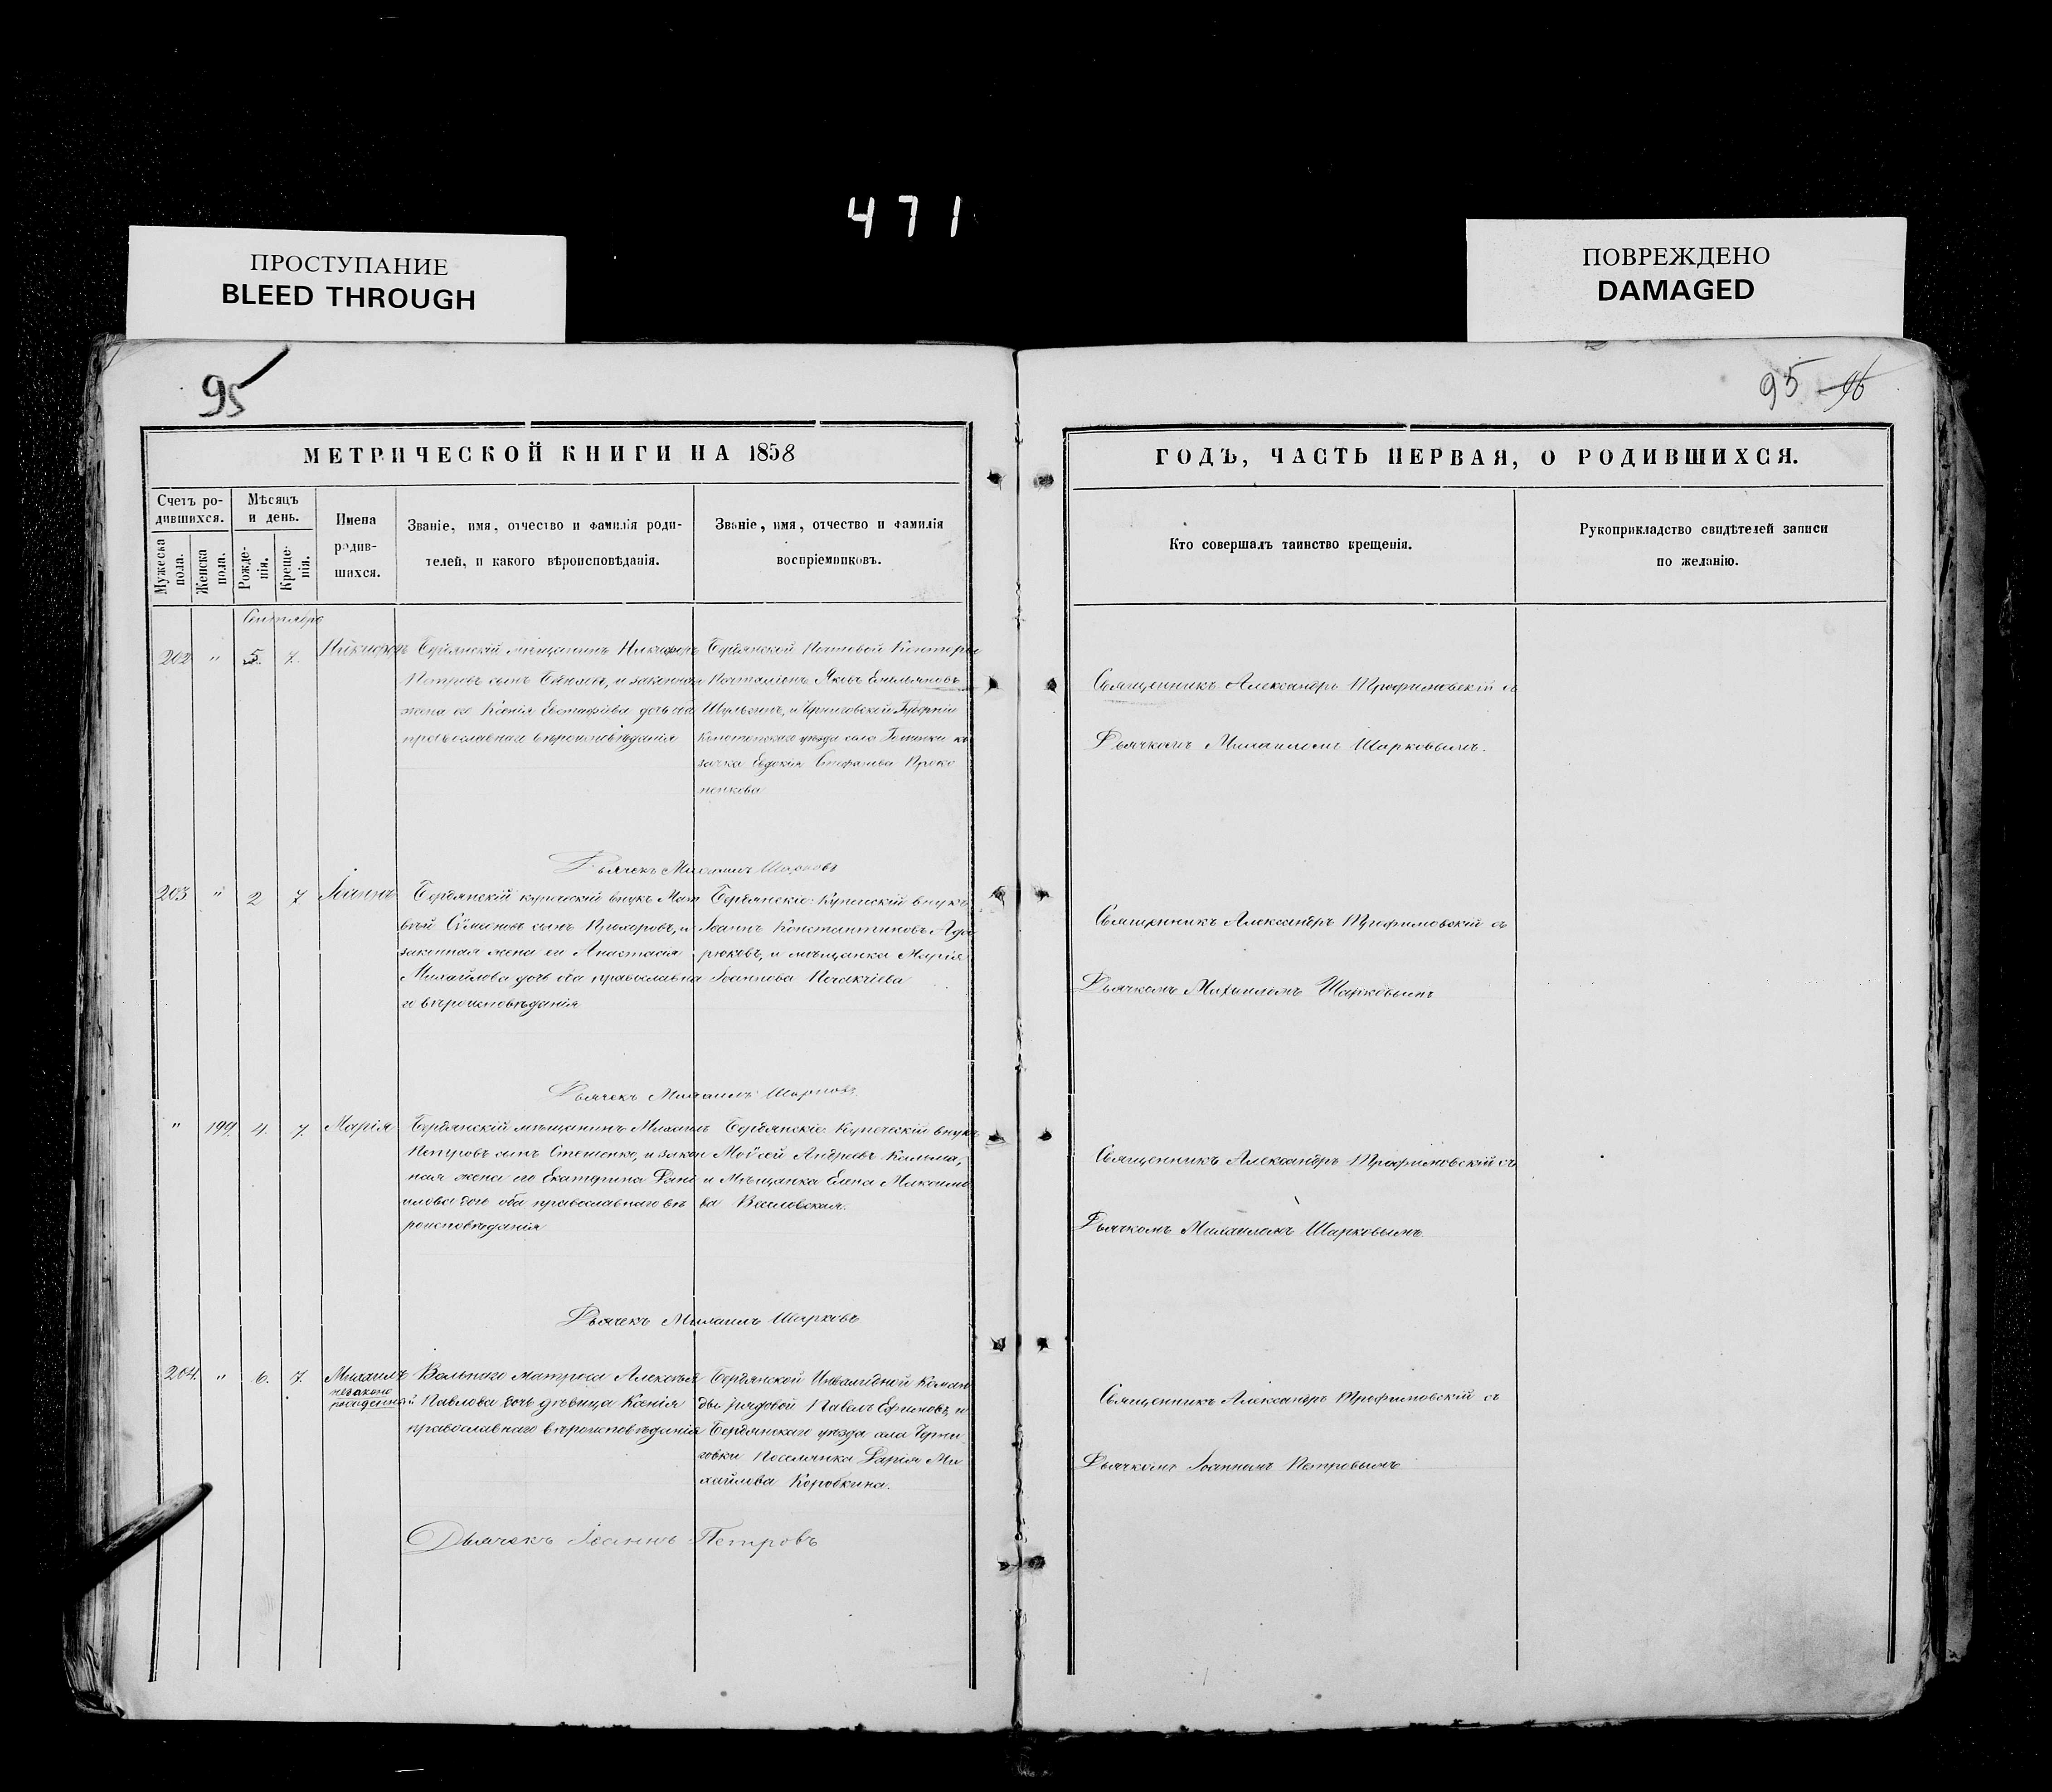 471
ПРОСТУПАНИЕ
BLEED THROUGH
ПОВРЕЖДЕНО
DAMAGED
95
95 96
МЕТРИЧЕСКОЙ КНИГИ НА 1858
ГОДЪ, ЧАСТЬ ПЕРВАЯ, О РОДИВШИХСЯ.
Счетъ ро-
дившихся.
Мужеска
пола.
Женска
пола.
Мѣсяцъ
и день.
Рожде-
нія.
Креще-
нія.
Имена
родив-
шихся.
Званіе, имя, отчество и фамилія роди-
телей, и какого вѣроисповѣданія.
Званіе, имя, отчество и фамилія
воспріемниковъ.
Кто совершалъ таинство крещенія.
Рукоприкладство свидѣтелей записи
по желанію.
Сентябрь
202 " 5. 7.
Никифоръ
Бердянскій мѣщанинъ Никифоръ
Петровъ сынъ и законная
жена его Ксенія Евстафіева дочь оба
православнаго вѣроисповѣданія
Бердянской Почтовой Конторы
Почталіонъ Яковъ Емельяновъ
Шульгинъ, и Черниговской Губерніи
уѣзда села ка
зачка Евдокія Стефанова Проко
пенкова
Священникъ Александръ Трофимовскій съ
Дьячкомъ Михаиломъ Шарковымъ.
Дьячекъ Михаилъ Шарковъ
203 " 2 7
Іоаннъ
Бердянскій купеческій внукъ Мат
вѣй сынъ Прохоровъ, и
законная жена его Анастасія
Михайлова дочь оба православна
го вѣроисповѣданія
Бердянскіе: Купеческій внукъ
Іоаннъ Константиновъ
рюковъ, и мѣщанка Марія
Іоаннова
Священникъ Александръ Трофимовскій съ
Дьячкомъ Михаиломъ Шарковымъ
Дьячекъ Михаилъ Шарковъ
" 199. 4. 7.
Марія
Бердянскій мѣщанинъ Михаилъ
Петровъ сынъ Стеценко, и закон
ная жена его Екатерина Дани
илова дочь оба православнаго вѣ
роисповѣданія
Бердянскіе: Купеческій внукъ
Моѵсей Андреевъ Кальма,
и Мѣщанка Елена Максимо
ва Василовская.
Священникъ Александръ Трофимовскій съ
Дьячкомъ Михаиломъ Шарковымъ.
Дьячекъ Михаилъ Шарковъ
204. " 6. 7.
Михаилъ
незаконо
рожденный
Вольнаго матроса Алексѣя
Павлова дочь дѣвица Ксенія
православнаго вѣроисповѣданія
Бердянской Инвалидной Коман
ды рядовой Павелъ Ефимовъ, и
Бердянскаго уѣзда села Черни
говки Поселянка Дарія Ми
хайлова Коробкина.
Священникъ Александръ Трофимовскій съ
Дьячкомъ Іоанномъ Петровымъ
Дьячекъ Іоаннъ Петровъ